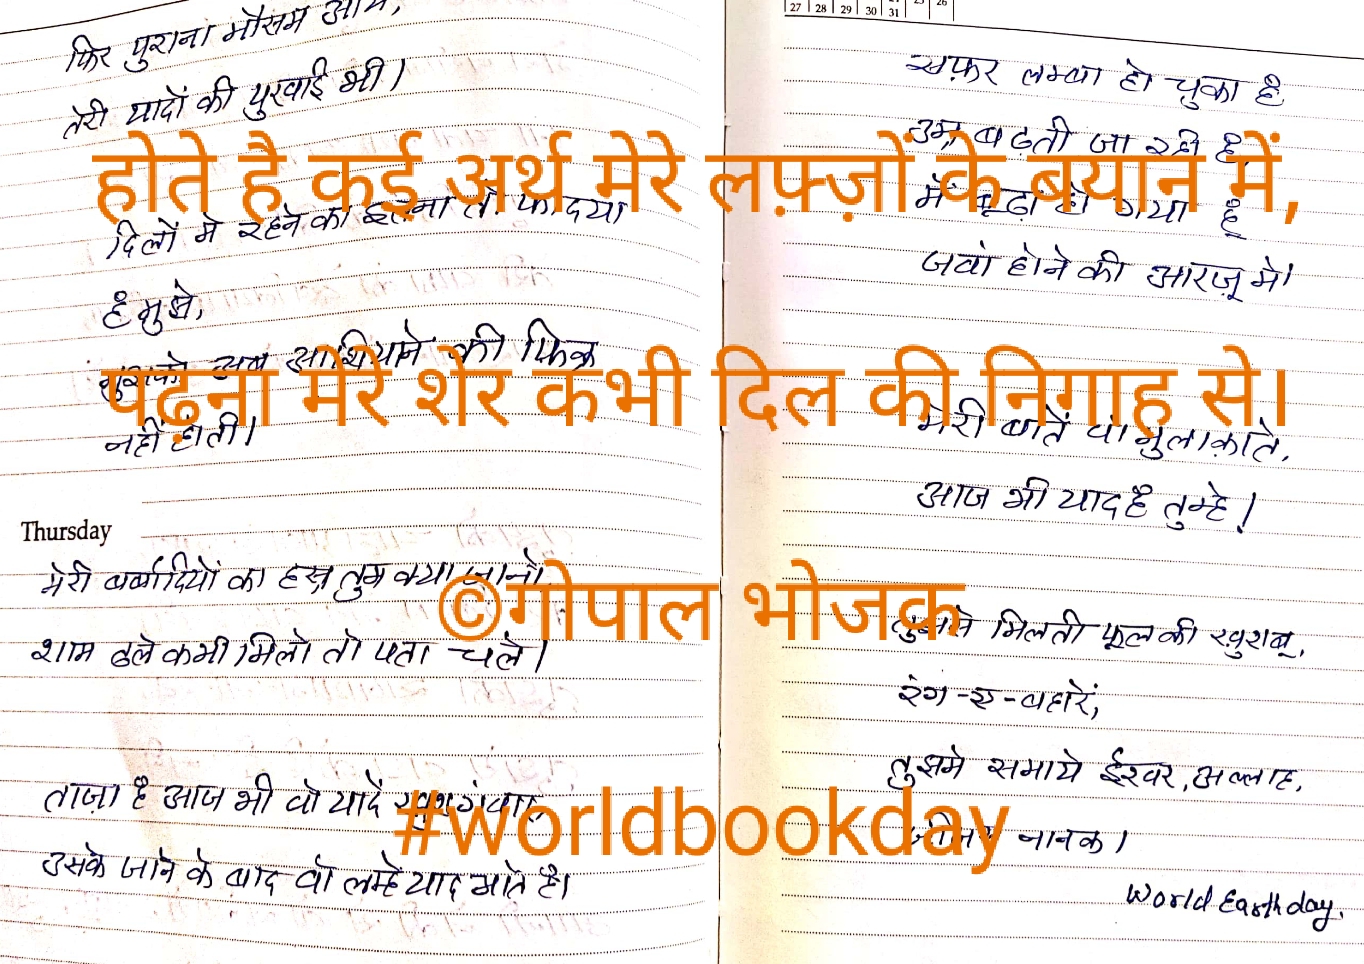 फिर पुराना मौसम आये,
तेरी यादों की पुरवाई भी।
दिलों मे रहने का इतना तो फायदा
है मुझे,
मुझको अब आशियाने की फिक्र
नहीं होती।
Thursday
मेरी बर्बादियों का हस्र तुम क्या जानो
शाम ढले कभी मिलो तो पता चले।
ताज़ा है आज भी वो यादें
उसके जाने के बाद वो लम्हे याद आते है।
27 28 29 30 31
सफ़र लम्बा हो चुका है
उम्र बढ़ती जा रही है,
में बूढ़ा हो गया हूँ
जवां होने की आरज़ू मे।
मेरी बातें वो मुलाक़ाते,
आज भी याद है तुम्हे!
तुझसे मिलती फूल की खुशबू,
रंग-ए-बहारें,
तुझमे समाये ईश्वर, अल्लाह,
नानक।
World Earth day.
होते है कई अर्थ मेरे लफ़्ज़ों के बयान में,
पढ़ना मेरे शेर कभी दिल की निगाह से।
©गोपाल भोजक
#worldbookday